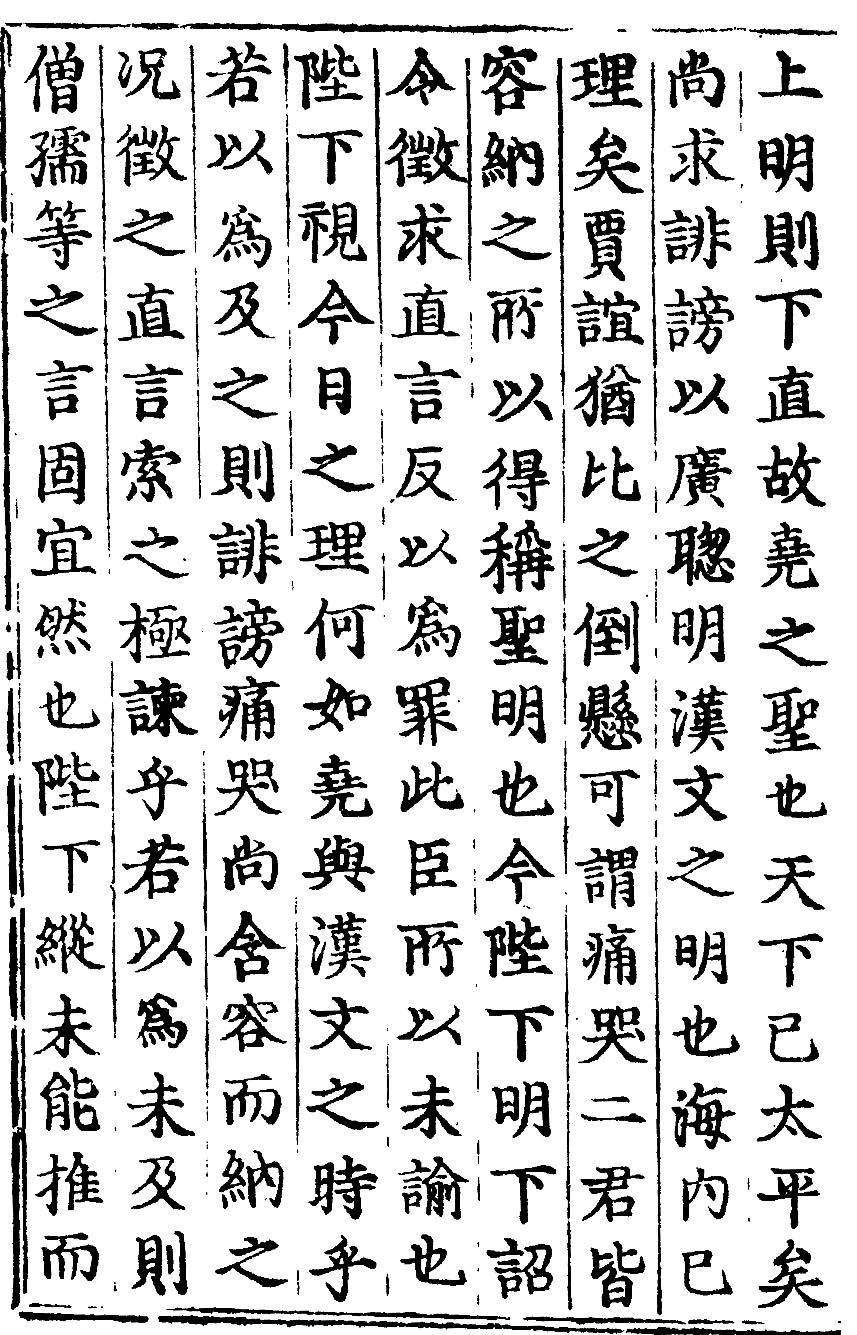 上明則下直故堯之聖也天下已太平矣
尚求誹謗以廣聰明漢文之明也海內已
理矣賈誼猶比之倒懸可謂痛哭二君皆
容納之所以得稱聖明也今陛下明下詔
令徵求直言反以爲罪此臣所以未諭也
陛下視今日之理何如堯與漢文之時乎
若以爲及之則誹謗痛哭尚含容而納之
況徵之直言索之極諫乎若以爲未及則
僧孺等之言固宜然也陛下縱未能推而